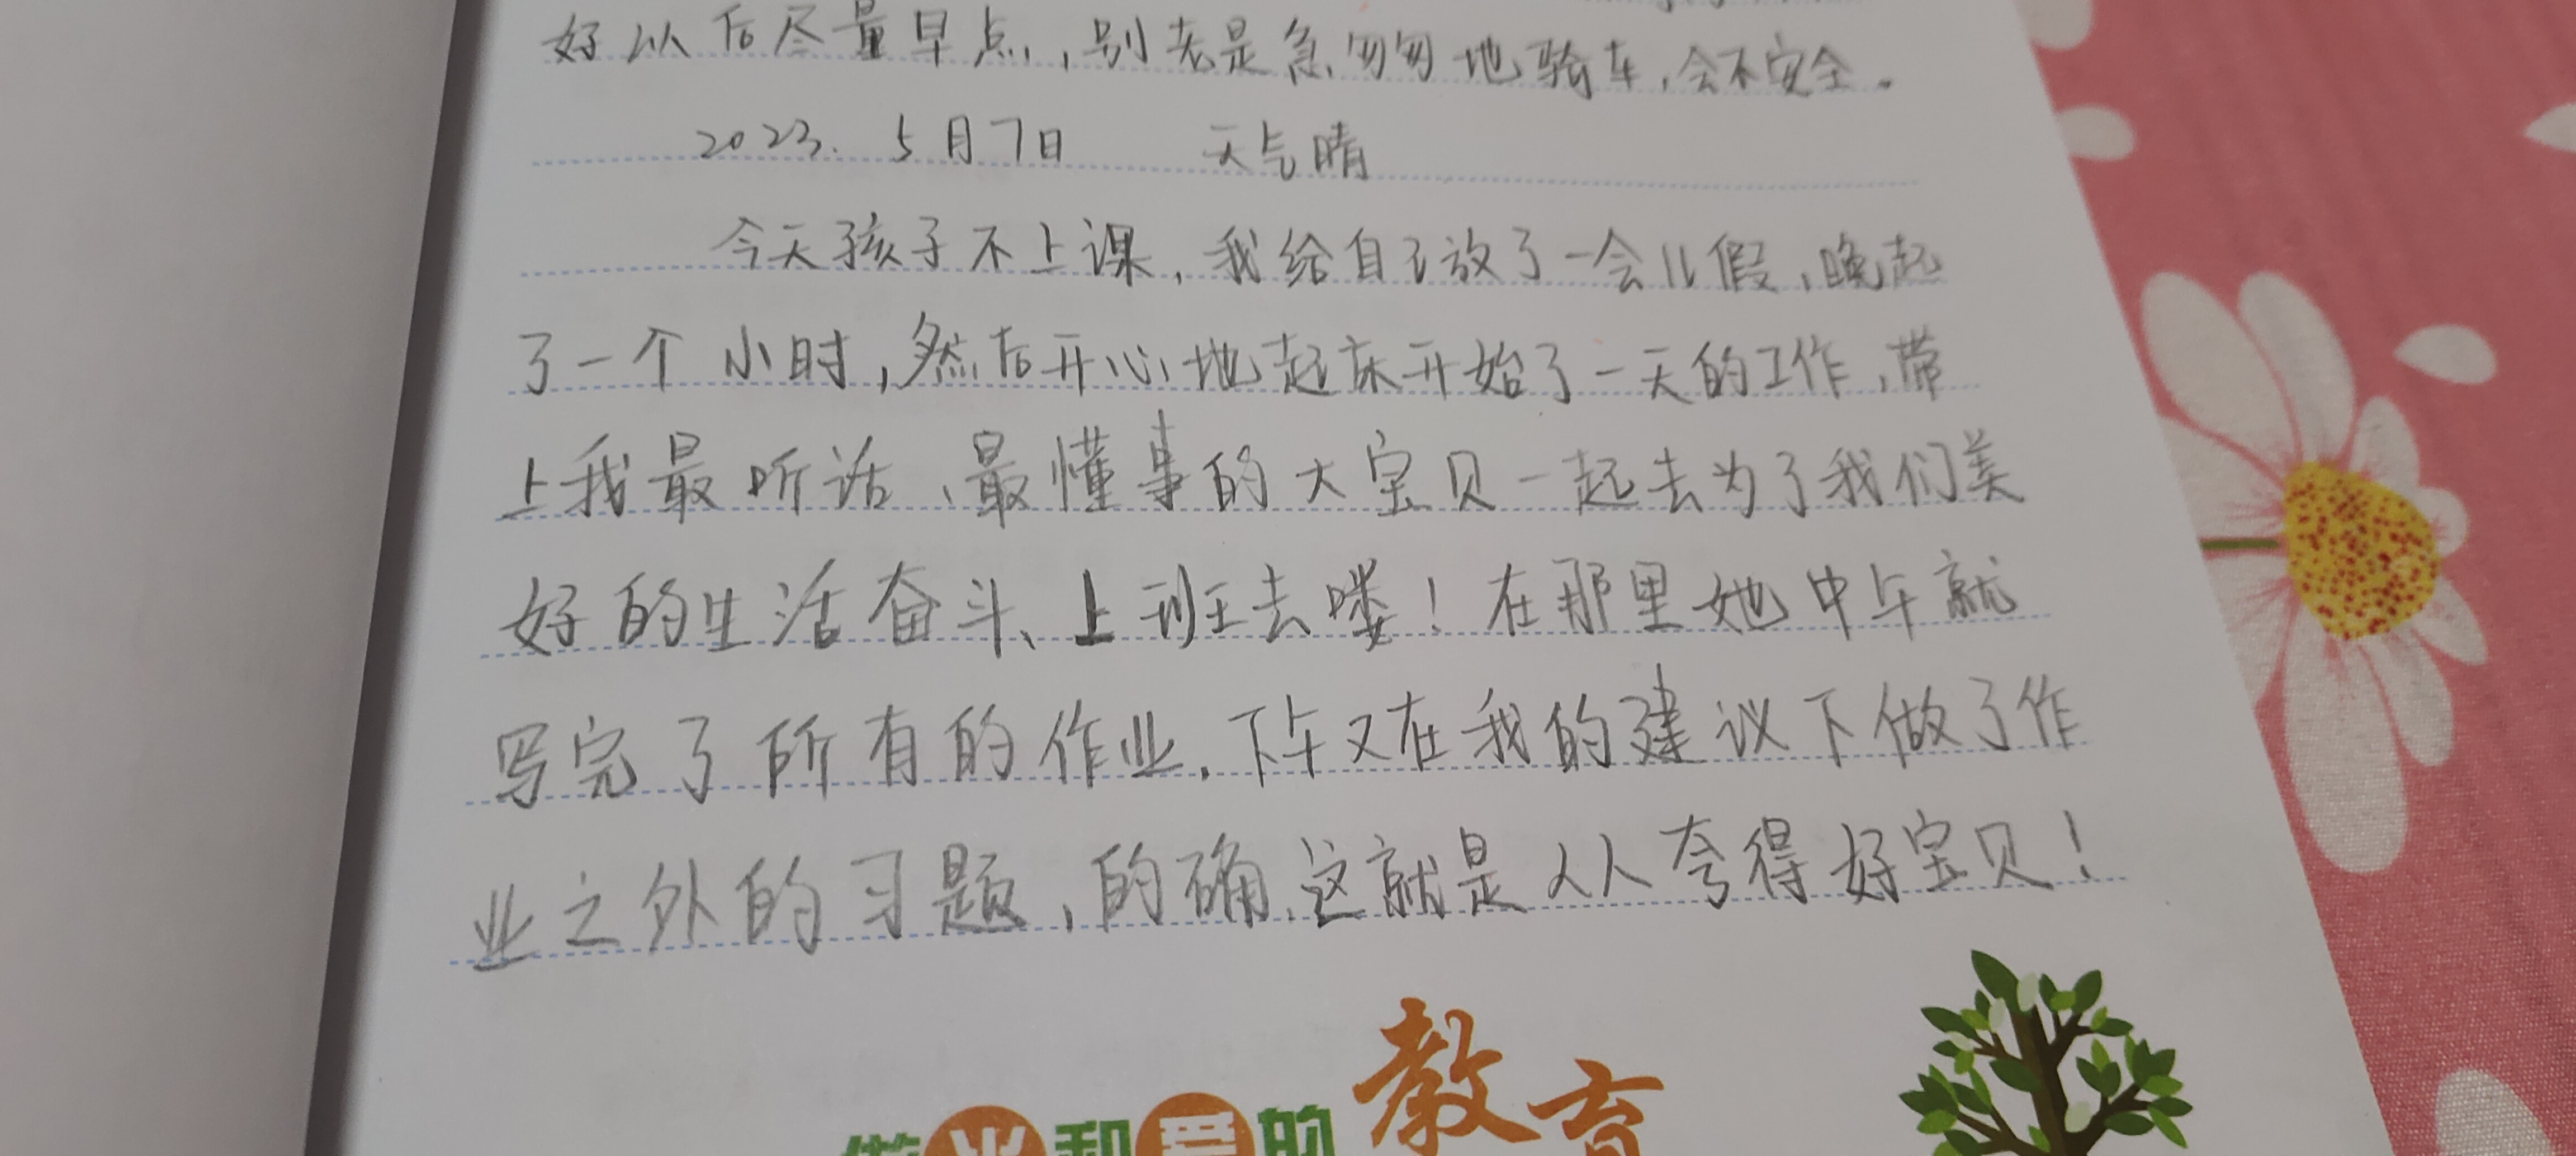 好以后尽量早点,别老是急匆匆地骑车,会不安全。
2023. 5月7日 天气晴
今天孩子不上课,我给自己放了一会儿假,晚起
了一个小时,然后开心地起床开始了一天的工作,带
上我最听话、最懂事的大宝贝一起去为了我们美
好的生活奋斗、上班去喽!在那里她中午就
写完了所有的作业.下午又在我的建议下做了作
业之外的习题,的确,这就是人人夸得好宝贝!
做光和爱的教育